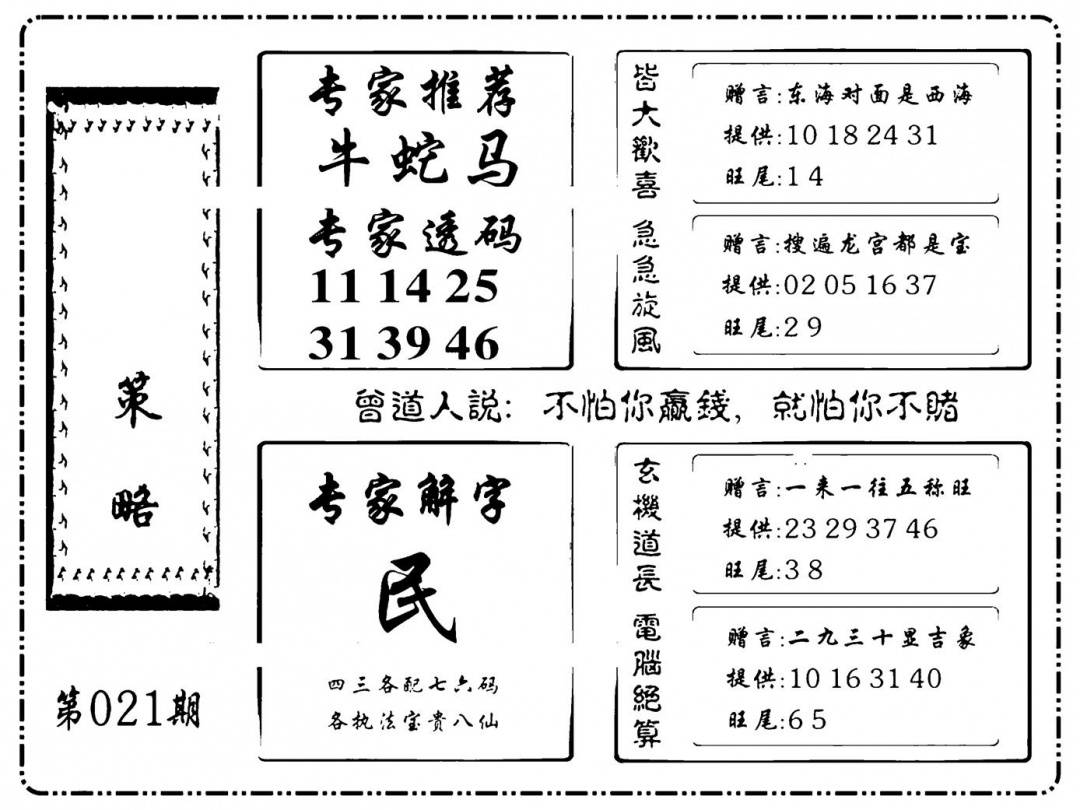 策略
第021期
专家推荐
牛蛇马
专家透码
11 14 25
31 39 46
皆大歡喜
赠言:东海对面是西海
提供:10 18 24 31
旺尾:1 4
急急旋風
赠言:搜遍龙宫都是宝
提供:02 05 16 37
旺尾:2 9
曾道人説: 不怕你贏錢, 就怕你不賭
专家解字
民
四三各配七六码
各执法宝贵八仙
玄機道長
赠言:一来一往五称旺
提供:23 29 37 46
旺尾:3 8
電腦絕算
赠言:二九三十显吉象
提供:10 16 31 40
旺尾:6 5